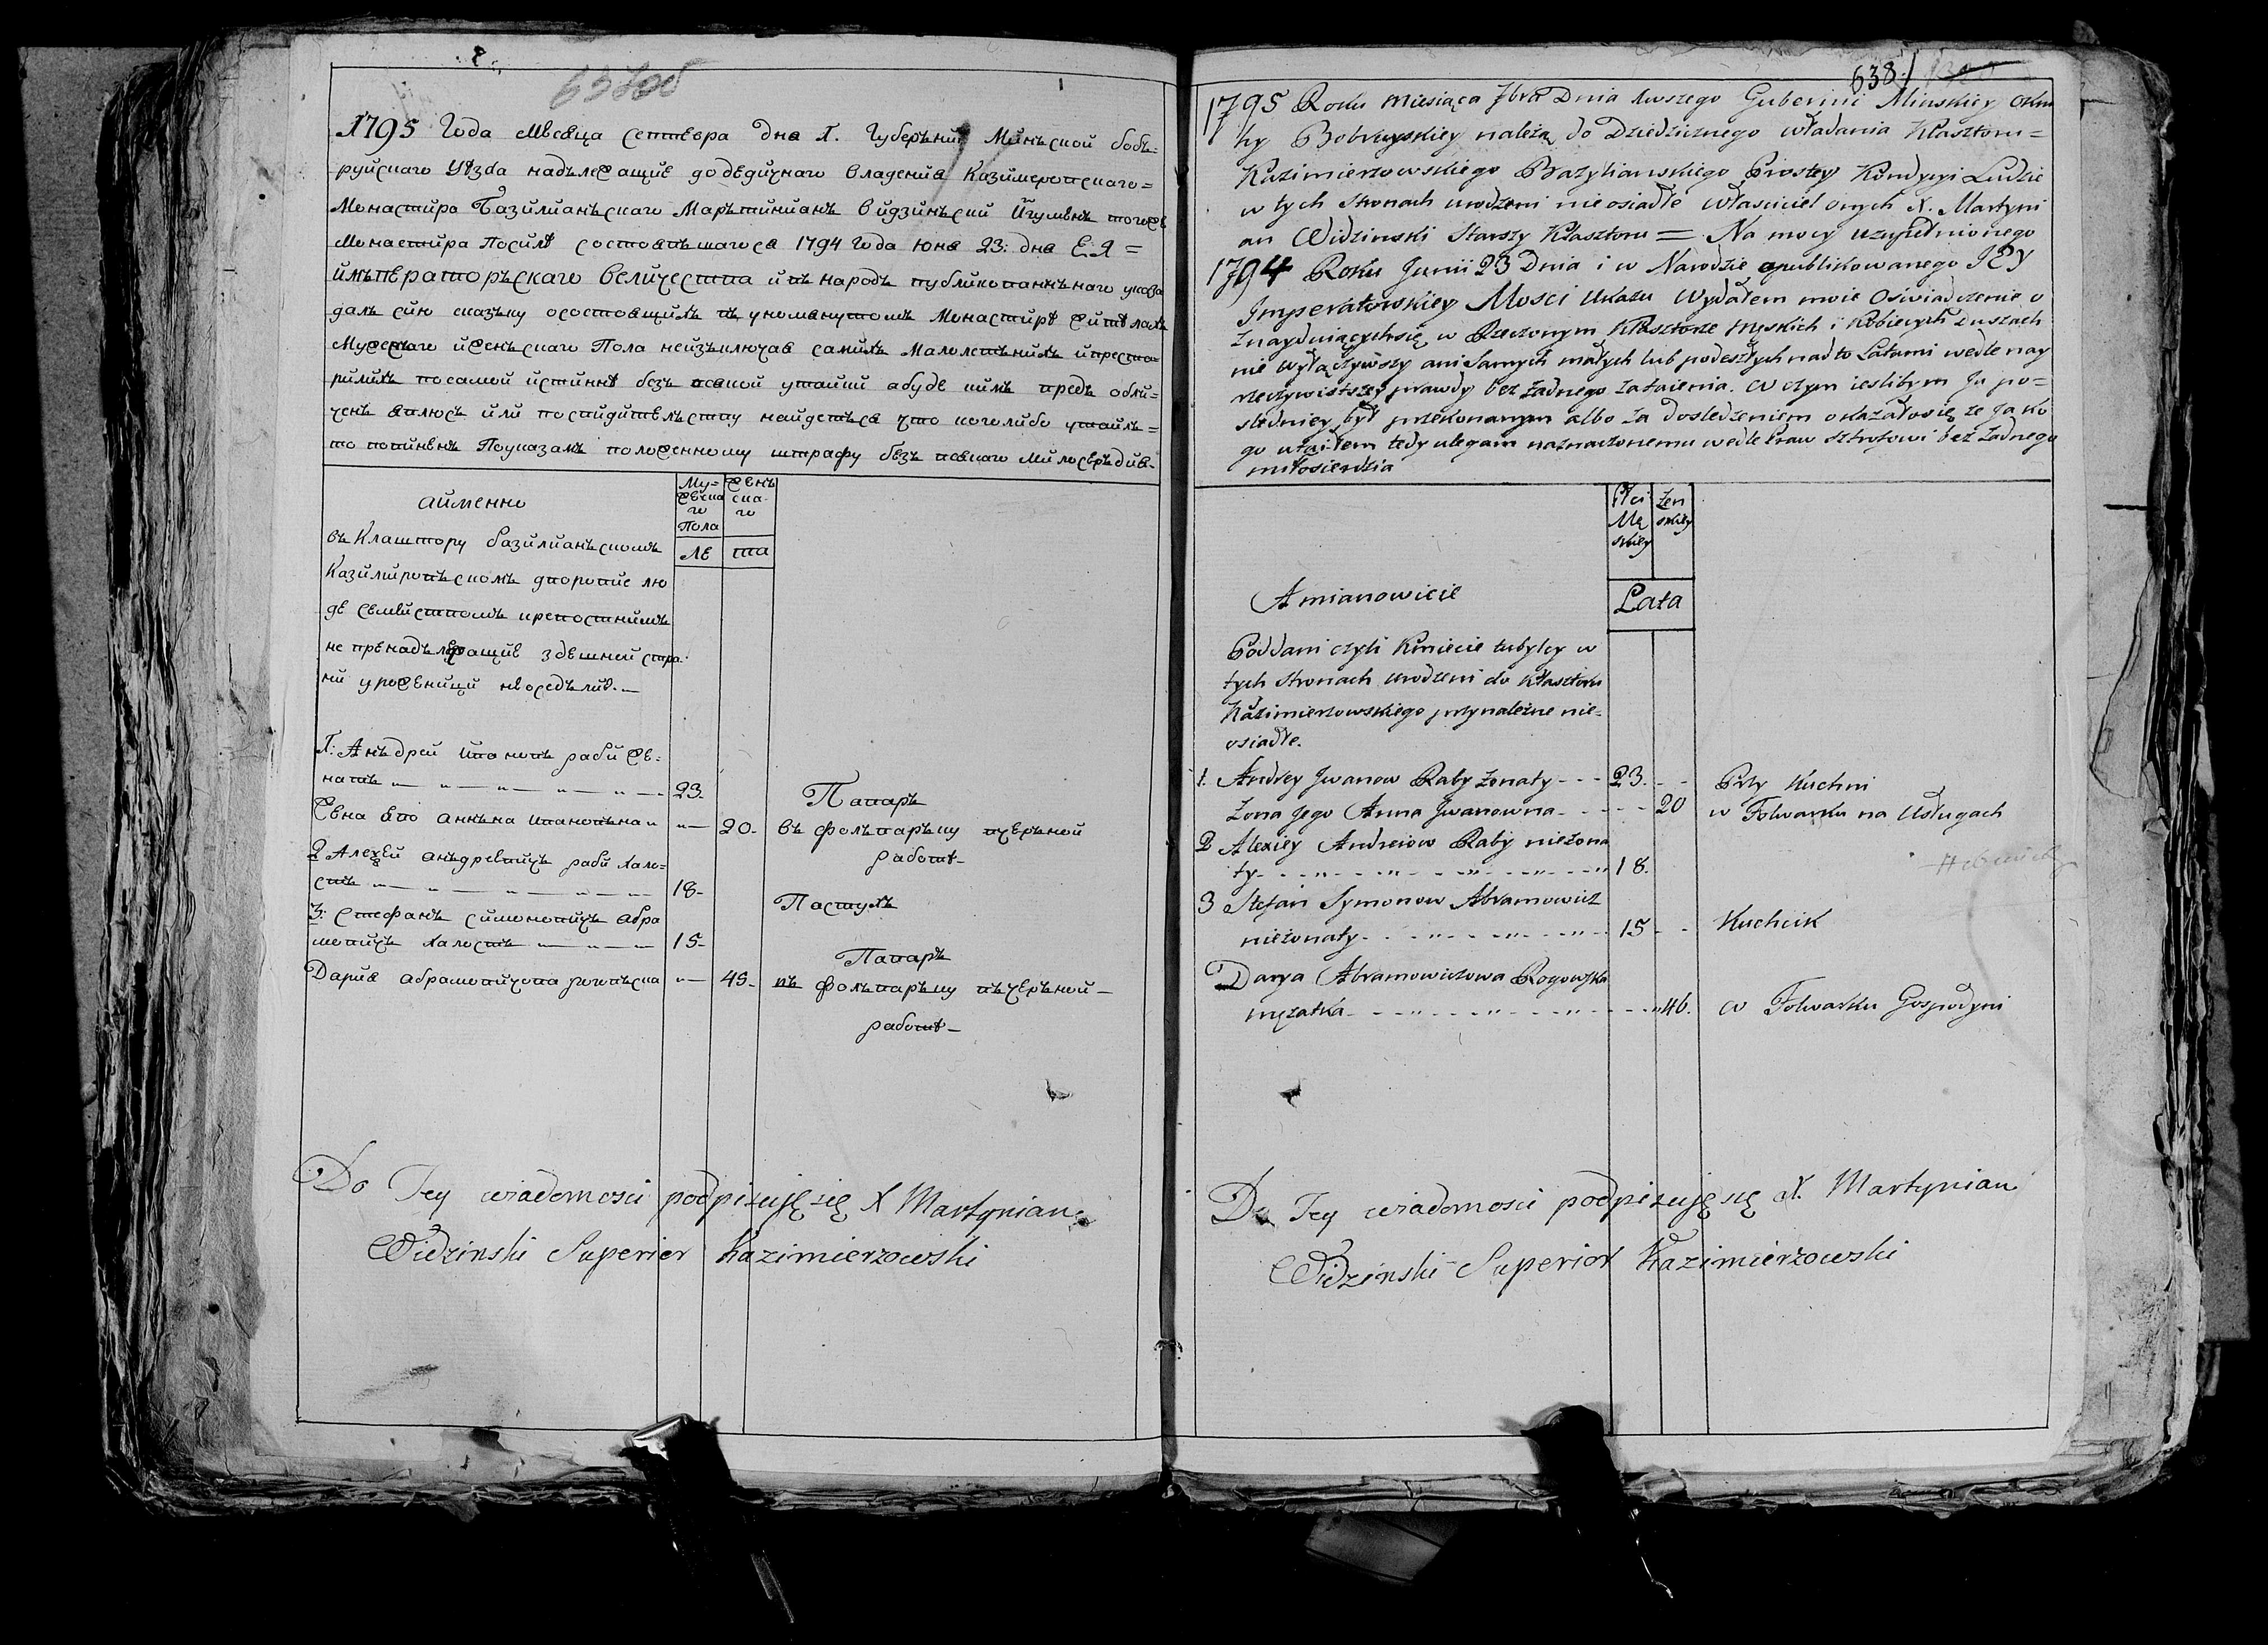 637об
1795 Года мѣсяца септевра дня 1. Губерънии Минъской бобъ=
руйскаго Уѣзда надълежащие додедичнаго владения Казимеровскаго=
Монастира Базилианъскаго Марътинианъ видзинъский Йгуменъ тогоже
Монастира Посилѣ состоявъшагося 1794 года юня 23: дня Е: Я=
Имъператоръскаго Величества и въ народъ публикованнънаго указа
далъ сию сказъку осостоящихъ въ упомянутомъ Монастирѣ
Мужескаго иженъскаго Пола неизъключая самихъ Малолетънихъ ипреста
рилихъ посамой истиннѣ безъ всякой утайки абуде кимъ предъ обли=
ченъ явлюсь или посвидителъству найдетъся что коголибо утаилъ=
то повиненъ Поуказамъ положенному штрафу безъ всякаго милосеръдия-
айменно
Му=
жеска
го
Пола
женъ
ска-
го
ле
та
въ Клаштору базилианъскомъ
Казимировъскомъ дворовие лю
де семейством крепостнимъ
не пренадълежащие здешней стра
ни уроженици неоседълие.—
1: Анъдрей Ивановъ раби же=
натъ 23-
жена его Анъна Ивановъна 20-
Поваръ
въ фолъваръку въчеръной
работѣ-
2 Алексей анъдреевичъ раби холо=
стъ 18-
Пастухъ
3: Стефанъ симоновичъ абра
мовичъ холостъ 15-
Поваръ
Дария абрамовичова роговъска 45-
въ фолъваръку въчеръной-
работѣ-
Do Tey wiadomosci podpisuję się X Martynian
Widzinski Superior Kazimierzowski
638
1795 Roku Miesiąca 7bra Dnia 1wszego Gubernii Minskiey Okru
hy Bobruyskiey należą do Dziedzicznego władania Klasztoru=
Kazimierzowskiego Bazyliańskiego Prostey Kondycyi Ludzie
w tych stronach urodzeni nieosiadłe właściciel onych X. Martyni
an Widzinski Starszy Klasztoru = Na mocy uzupełnionego
1794 Roku Junii 23 Dnia i w Narodzie opublikowanego JEY
Imperatorskiey Mosci Ukazu Wydałem moie Oświadczenie o
Znayduiącychsię w Rzeczonym Klasztorze Męskich i Kobiecych Duszach
nie wyłączywszy ani Samych małych lub podeszłych nad to Latami wedle nay
rzeczywistszey prawdy bez żadnego zataienia. W czym iesliбym Ja po=
sledniey był przekonanym albo za dosledzeniem okazałosię że Ja ko
go utaiłem tedy ulegam naznaczonemu wedle Praw sztrofowi bez żadnego
miłosierdzia
Płci
Mę
skiey
Żen
skiey
Amianowicie
Lata
Poddani czyli Kmiecie tubylcy w
tych Stronach urodzeni do Klasztoru
Kazimierzowskiego przynależne nie-
osiadłe.
1. Andrey Jwanow Raby żonaty - - - 23. - - Przy Kuchni
Żona Jego Anna Jwanowna - - - - 20 w Folwarku na Usługach
2 Alexiey Andreiow Raby nieżona
ty - - - - 18.
3 Stefan Symonow Abramowicz
nieżonaty - - - - 15 - - Kuchcik
Darya Abramowiczowa Rogowska
mężatka - - - - 46. w Folwarku Gospodyni
Do Tey wiadomosci podpisuję się X. Martynian
Widzinski Superior Kazimierzowski